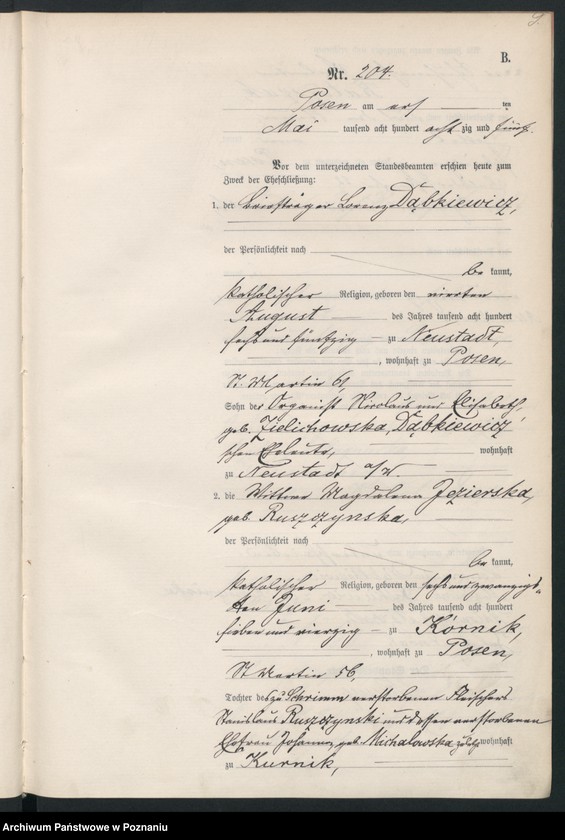 9.
B.
Nr. 204.
Posen am erst ten
Mai tausend acht hundert acht zig und fünf.
Vor dem unterzeichneten Standesbeamten erschien heute zum
Zweck der Eheschließung:
1. der Briefträger Lorenz Dąbkiewicz,
der Persönlichkeit nach
be kannt,
katholischer Religion, geboren den vierten
August des Jahres tausend acht hundert
sechs und fünfzig zu Neustadt,
, wohnhaft zu Posen,
St. Martin 61,
Sohn der Organist Nicolaus und Elisabeth,
geb. Zielichowska, Dąbkiewicz'
schen Eheleute, wohnhaft
zu Neustadt a/W.
2. die Wittwe Magdalena Jezierska,
geb. Ruszczynska,
der Persönlichkeit nach
be kannt,
katholischer Religion, geboren den sechs und zwanzigs-
ten Juni des Jahres tausend acht hundert
sieben und vierzig zu Kórnik,
, wohnhaft zu Posen,
St. Martin 56,
Tochter des zu Schrimm verstorbenen Fleischers
Stanislaus Ruszczynski und dessen verstorbenen
Ehefrau Johanna, geb. Michalowska wohnhaft
zu Kurnik,
Archiwum Państwowe w Poznaniu